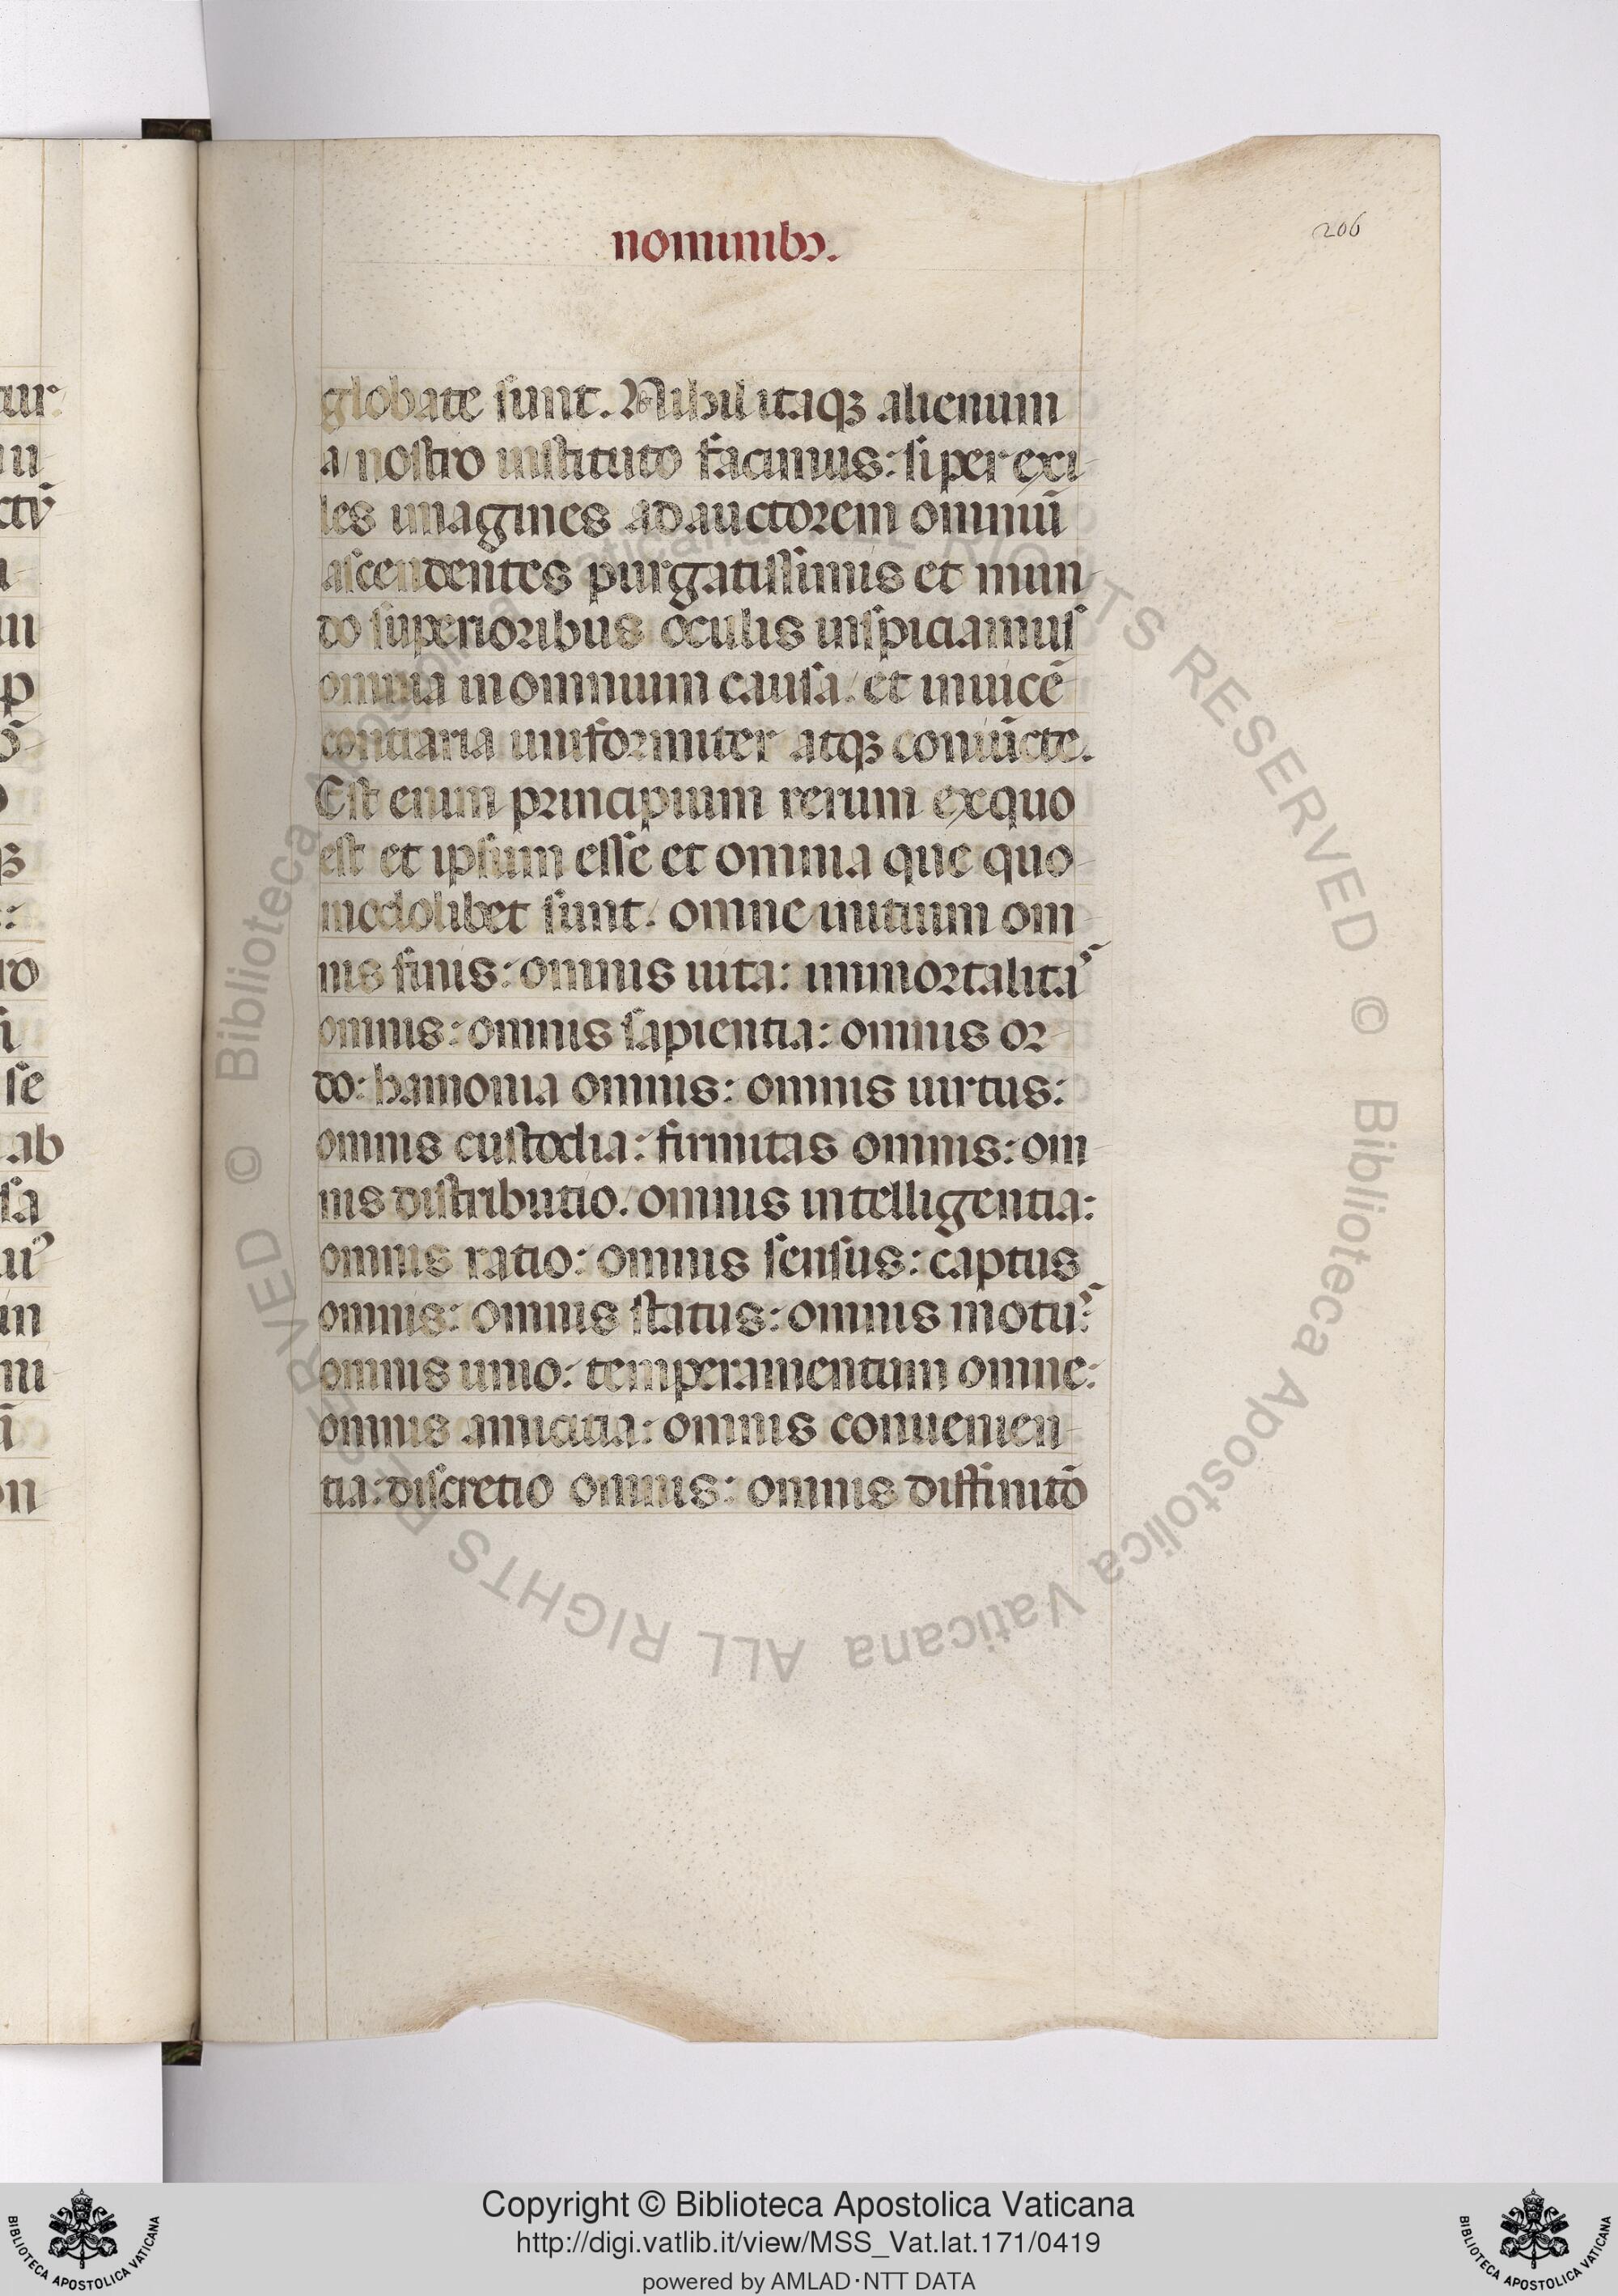 nominibꝰ.
206
globate sunt. Nihil itaqꝫ alienum
a/ nostro instituto facimus: si per exi-
les imagines ad auctorem omniū
ascendentes purgatissimis et mun-
do superioribus oculis inspiciamus
omnia in omnium causa/ et inuicē
contraria uniformiter atqꝫ coniūcte.
Est enim principium rerum ex quo
est et ipsum esse et omnia que quo-
modolibet sunt/ omne initium om-
nis finis: omnis uita: immortalitaˢ
omnis: omnis sapientia: omnis or-
do: hamonia omnis: omnis uirtus:
omnis custodia: firmitas omnis: om-
nis distributio/ omnis intelligentia:
omnis ratio: omnis sensus: captus
omnis: omnis status: omnis motuˢ:
omnis unio: temperamentum omne:
omnis amicitia: omnis conuenien-
tia: discretio omnis: omnis diffinitō
Copyright © Biblioteca Apostolica Vaticana
http://digi.vatlib.it/view/MSS_Vat.lat.171/0419
powered by AMLAD·NTT DATA
BIBLIOTECA APOSTOLICA VATICANA
BIBLIOTECA APOSTOLICA VATICANA
© Biblioteca Apostolica Vaticana ALL RIGHTS RESERVED © Biblioteca Apostolica Vaticana ALL RIGHTS RESERVED